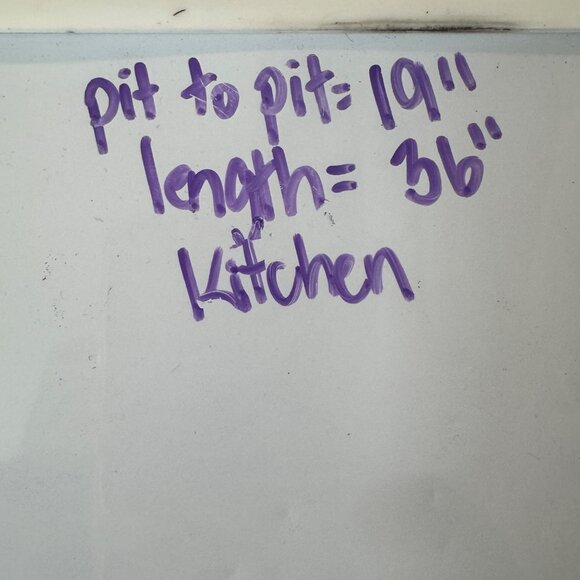 pit to pit= 19"
length= 36"
Kitchen